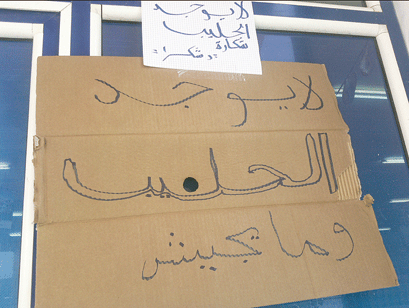 لا يوجد
الحليب
شكارة
"وشكرا"
لا يوجد
الحليب
وما تجييش